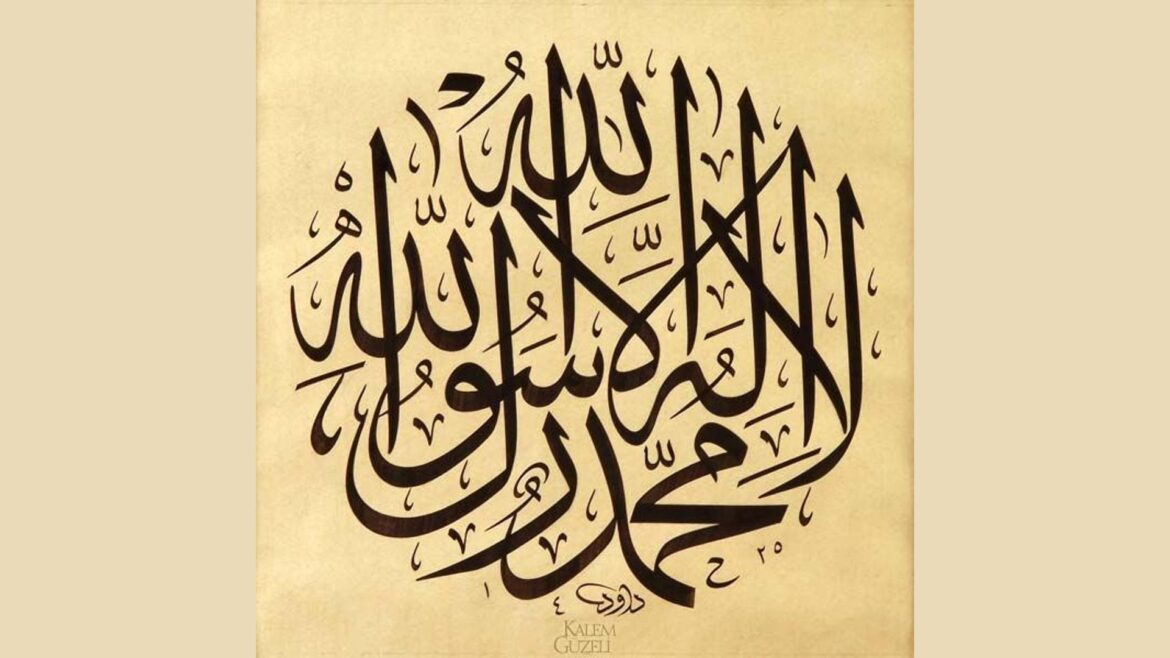 لا اله الا الله
محمد رسول الله
داود
١٤٢٥
KALEM
GUZELİ